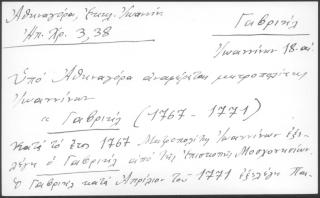 Ἀθηναγόρα, Ἐκκλ. Ἰωαννίν.
Ἠπ. Χρ. 3, 38
Γαβριήλ
Ἰωαννίνων 18. αἰ
Ὑπό Ἀθηναγόρα ἀναφέρεται μητροπολίτης
Ἰωαννίνων
« Γαβριήλ (1767 - 1771)
Κατά τό ἔτος 1767 Μητροπολίτης Ἰωαννίνων ἐξε-
λέγη ὁ Γαβριήλ ἀπό τῆς ἐπισκοπῆς Μοσχονησίων.
Ὁ Γαβριήλ κατά Ἀπρίλιον τοῦ 1771 ἐξελέγη Πα-